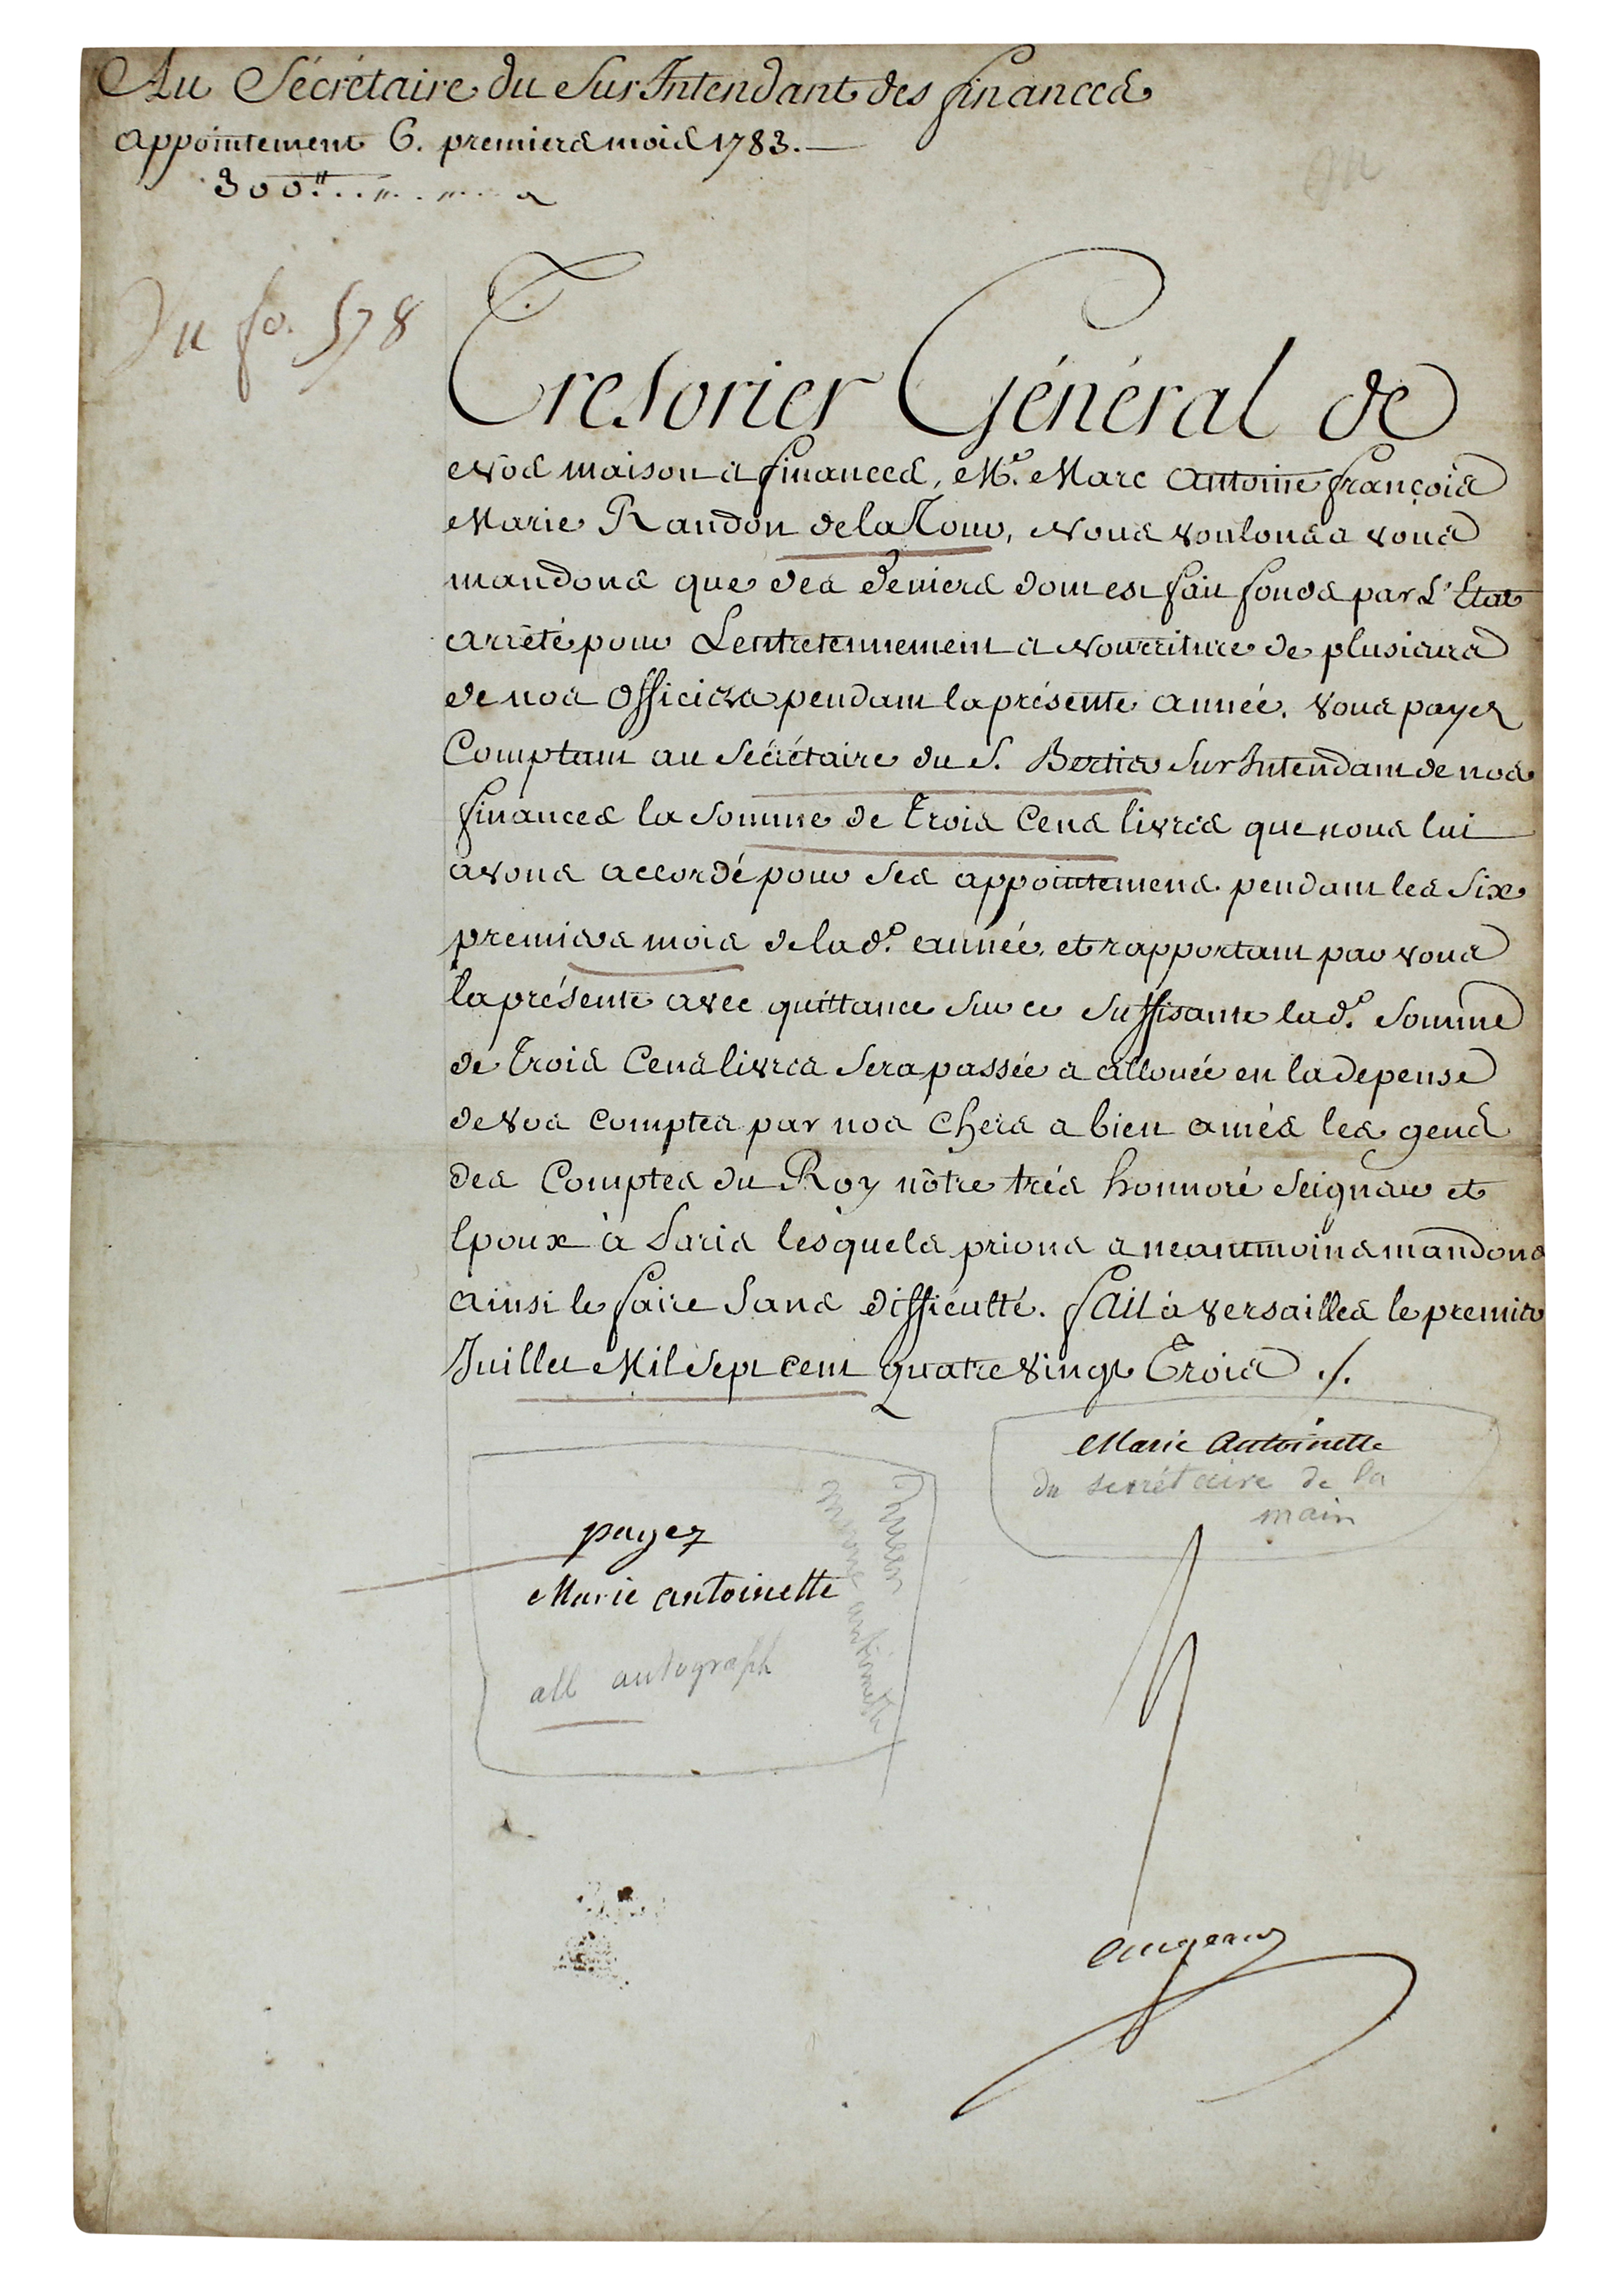 Au Sécrétaire du Sur Intendant des finances
appointement 6. premiers mois 1783.
300.tt
Vu fo. 578
Tresorier Général de
Nos maison et finances, Mr. Marc Antoine françois
Marie Randon de la Tour, Nous voulons et vous
mandons que des deniers dont est fait fonds par L'Etat
arrété pour L'entretennement et Nourriture de plusieurs
de nos Officiers pendant la présente année. vous payez
Comptant au Sécrétaire du S. Bertier Sur Intendant de nos
finances la Somme de Trois Cens livres que nous lui
avons accordé pour Ses appointemens pendant les Six
premiers mois de lad.e année, et rapportant par vous
la présente avec quittance Sur ce Suffisante lad.e Somme
de Trois Cens livres Sera passée et allouée en la depense
de vos Comptes par nos Chers et bien amés les gens
des Comptes du Roy nôtre trés honnoré Seigneur et
Epoux à Paris lesquels prions et neantmoins mandons
ainsi le faire Sans difficulté. fait à versailles le premier
Juillet Mil Sept cent quatre vingt Trois ./.
Marie Antoinette
du secrétaire de la
main
payez
Marie antoinette
all autograph
Queen
Marie antoinette
augeard